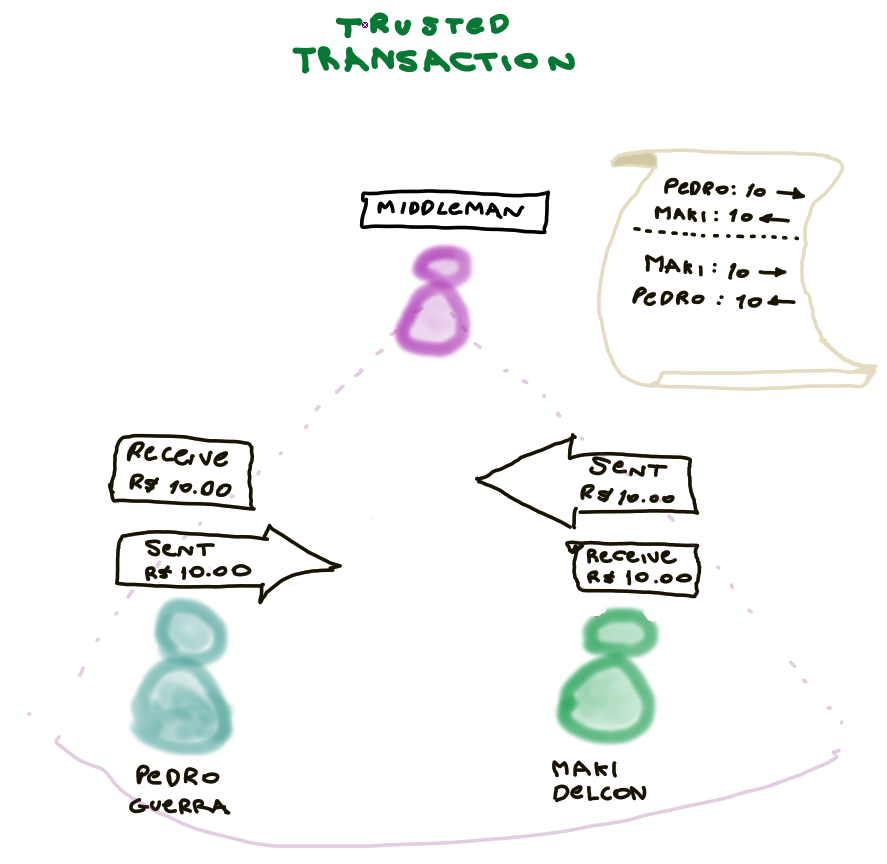 TRUSTED
TRANSACTION
MIDDLEMAN
PEDRO: 10 →
MAKI: 10 ←
MAKI: 10 →
PEDRO: 10 ←
RECEIVE
R$ 10.00
SENT
R$ 10.00
SENT
R$ 10.00
RECEIVE
R$ 10.00
PEDRO
GUERRA
MAKI
DELCON